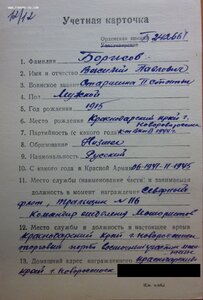 12/12
Учетная карточка
Орденская книжка № 242661
1. Фамилия Борисов
2. Имя и отчество Василий Павлович
3. Воинское звание Старшина II статьи
4. Пол Мужской
5. Год рождения 1915
6. Место рождения Краснодарский край г. Новороссийск
7. Партийность (с какого года)
8. Образование Низшее
9. Национальность Русский
10. С какого года в Красной Армии 06.1941 - 11.1945
11. Место службы (наименование части) и занимаемая
должность в момент награждения Северный
флот, тральщик № 116
Командир отделения Мотористов
12. Место службы и должность в настоящее время
Краснодарский край г. Новороссийск
торговый порт
13. Домашний адрес награжденного Краснодарский
край г. Новороссийск